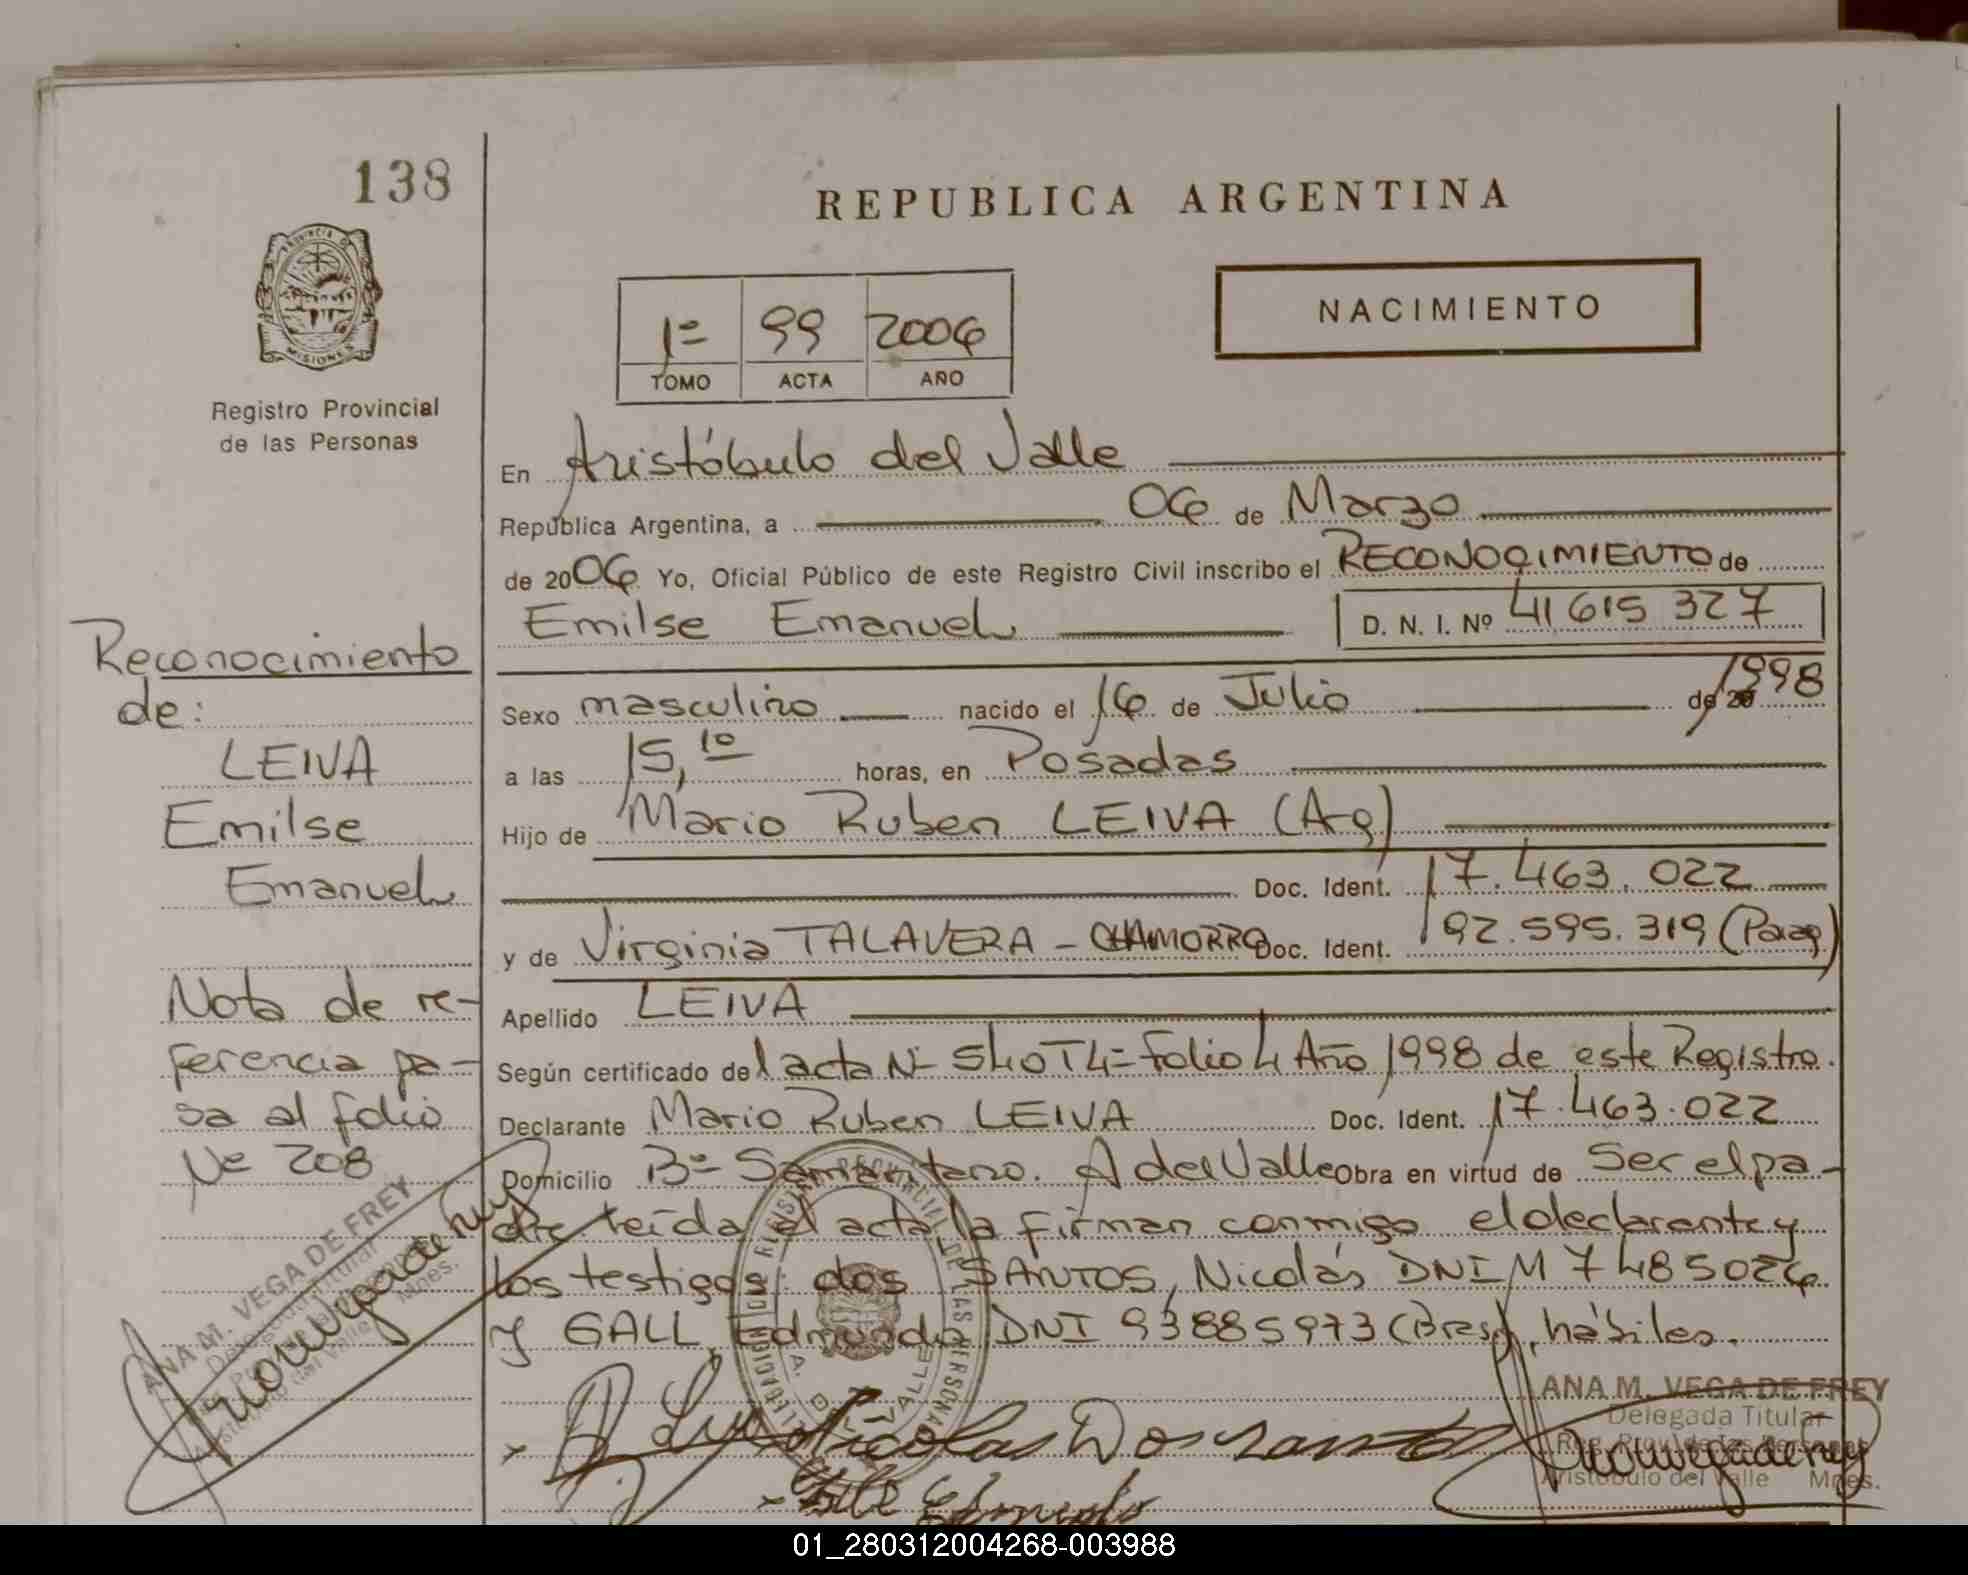 138
REPUBLICA ARGENTINA
PROVINCIA DE
MISIONES
Registro Provincial
de las Personas
NACIMIENTO
1º 99 2006
TOMO ACTA AÑO
En Aristóbulo del Valle
República Argentina, a 06 de Marzo
de 2006 Yo, Oficial Público de este Registro Civil inscribo el RECONOCIMIENTO de
Emilse Emanuel D. N. I. Nº 41 615 327
Sexo masculino nacido el 16 de Julio de 20 1998
a las 15,10 horas, en Posadas
Hijo de Mario Ruben LEIVA (Arg)
Doc. Ident. 17.463.022
y de Virginia TALAVERA - CHAMORRO Doc. Ident. 92.595.319 (Parag)
Apellido LEIVA
Según certificado del acta Nº 540 T4º Folio 4 Año 1998 de este Registro.
Declarante Mario Ruben LEIVA Doc. Ident. 17.463.022
Domicilio Bº A del Valle Obra en virtud de Ser el pa-
dre leída el acta la firman conmigo el declarante y
los testigos: dos SANTOS, Nicolás DNI M 7485026
y GALL, Edmundo DNI 93885973 (Bras), hábiles.
Reconocimiento
de:
LEIVA
Emilse
Emanuel
Nota de re-
ferencia pa-
sa al folio
Nº 208
ANA M. VEGA DE FREY
Delegada Titular
Aristóbulo del Valle Mnes.
REGISTRO PROVINCIAL DE LAS PERSONAS
A. DEL VALLE
Nicolas Dos santos
ANA M. VEGA DE FREY
Delegada Titular
Reg. Prov. de las Personas
Aristóbulo del Valle Mnes.
01_280312004268-003988